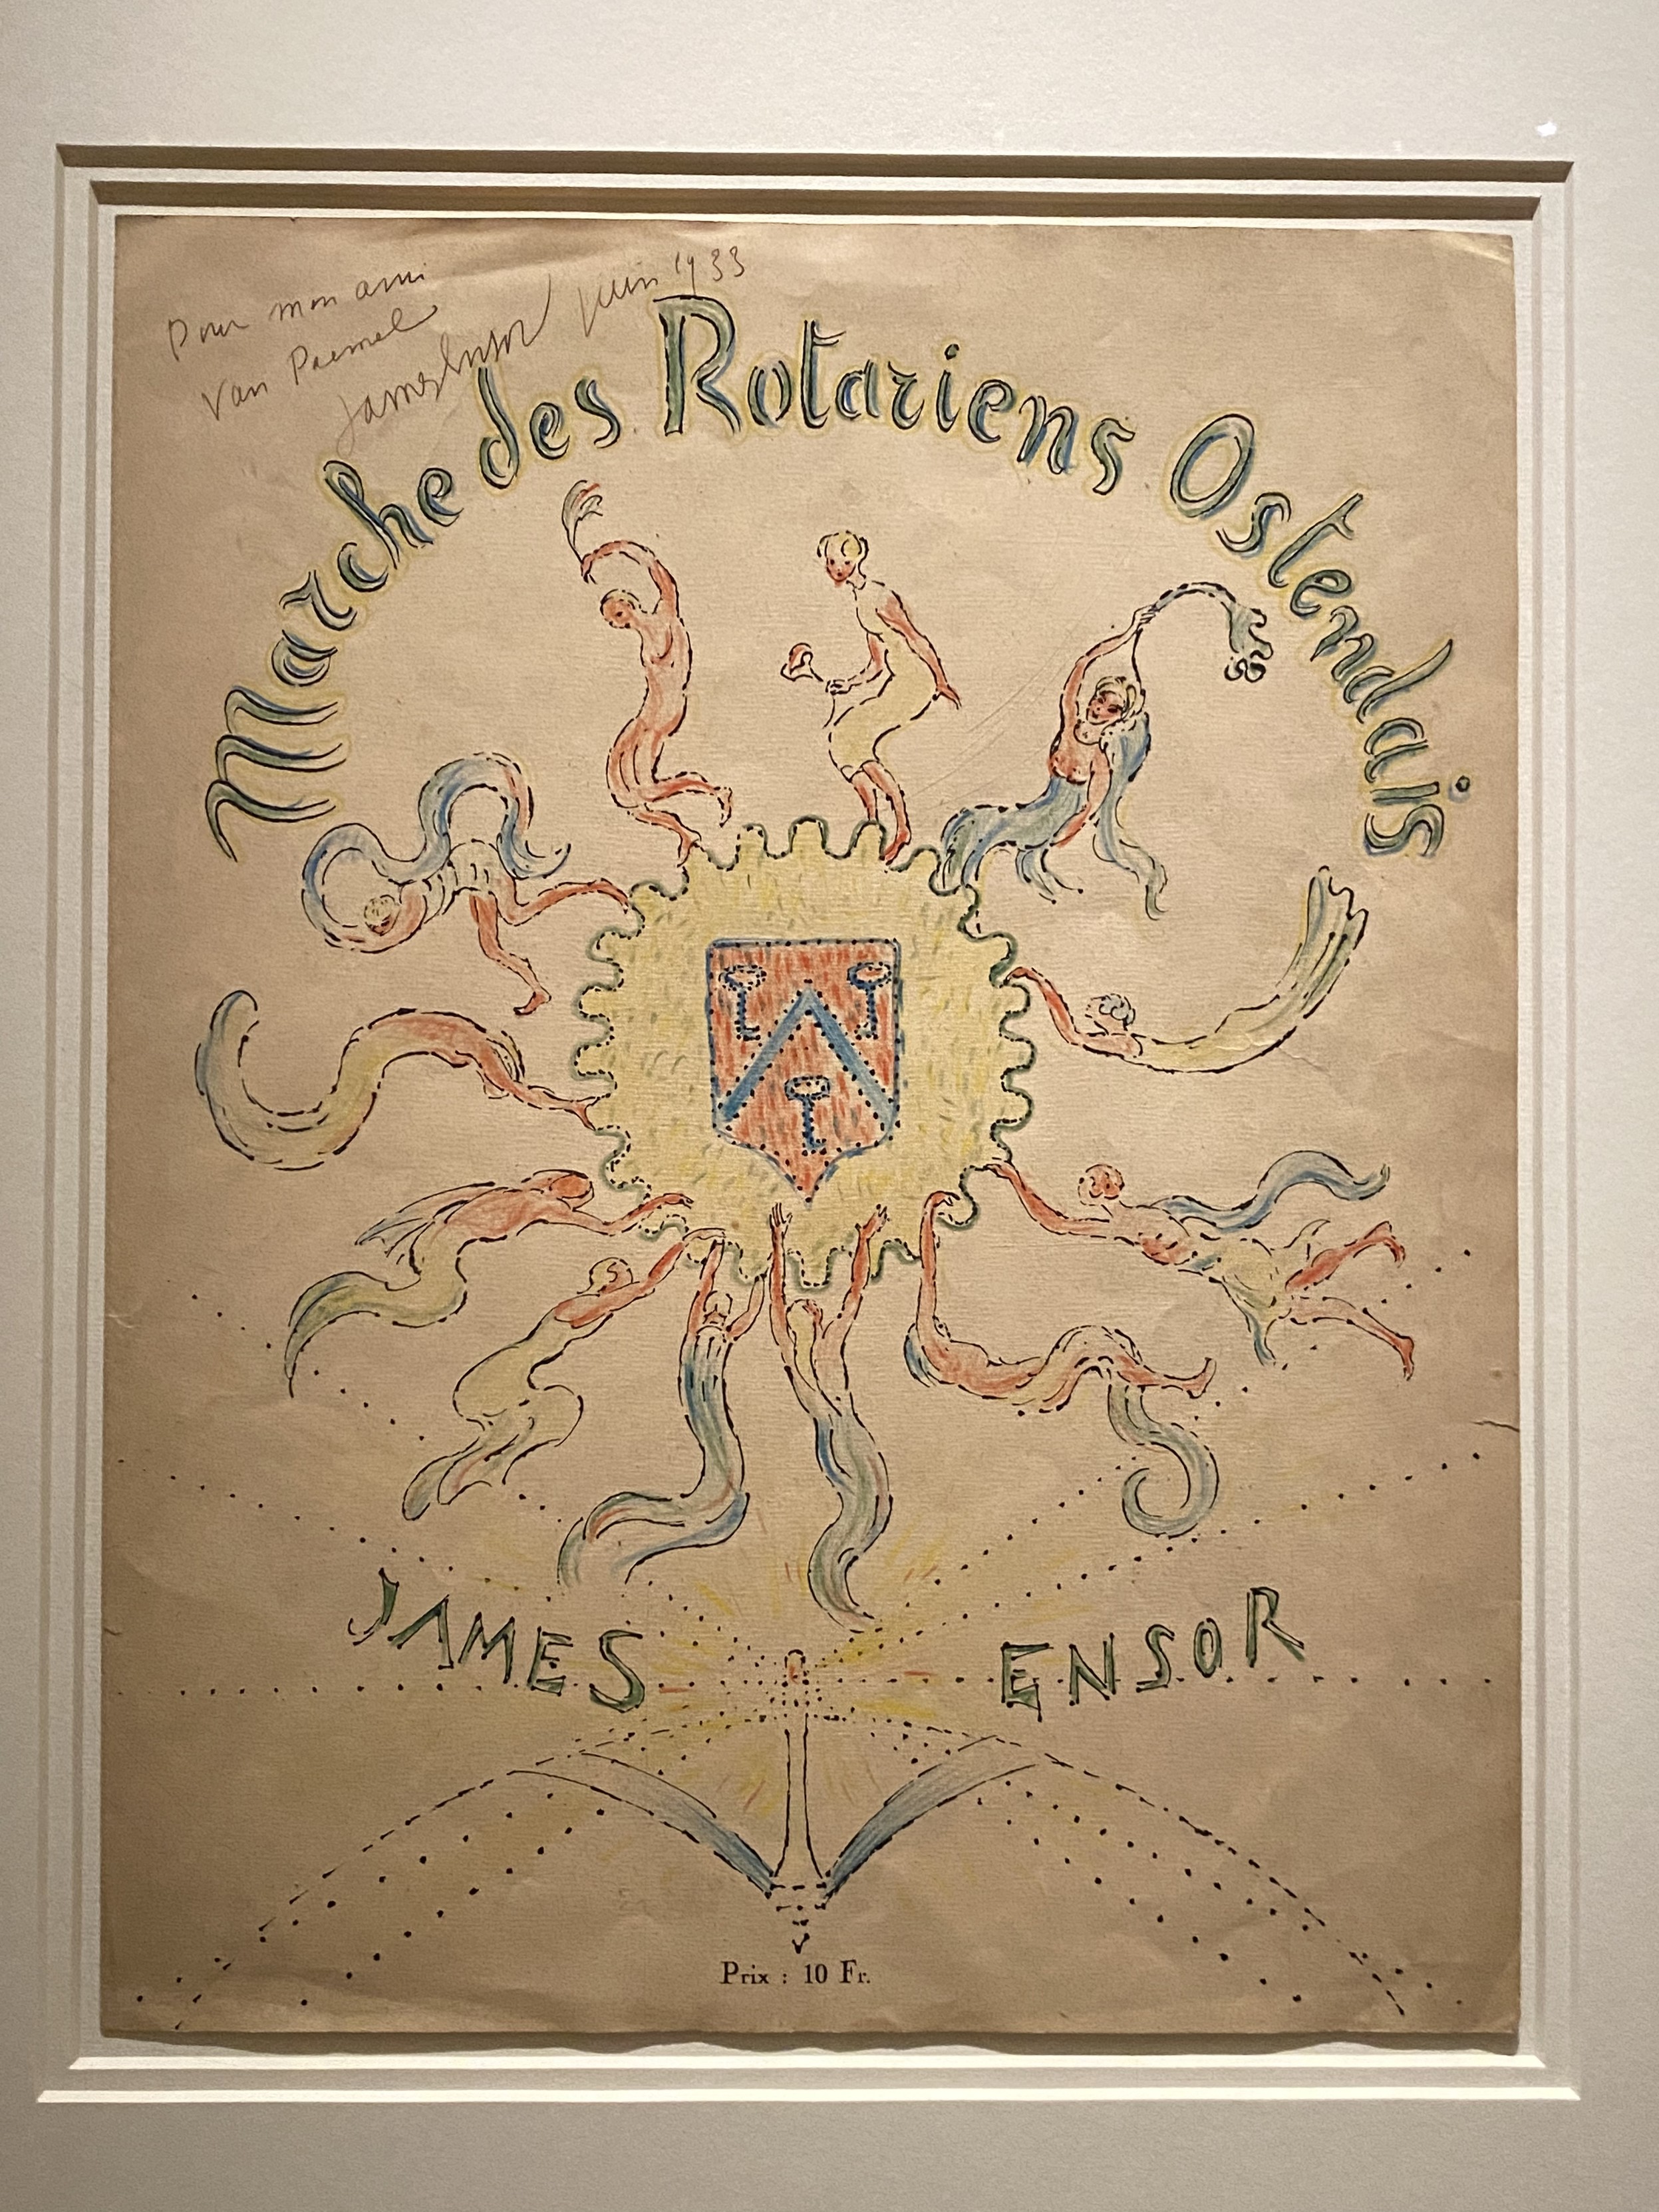 Pour mon ami
Van Paemel
James Ensor juin 1933
Marche des Rotariens Ostendais
JAMES ENSOR
Prix : 10 Fr.